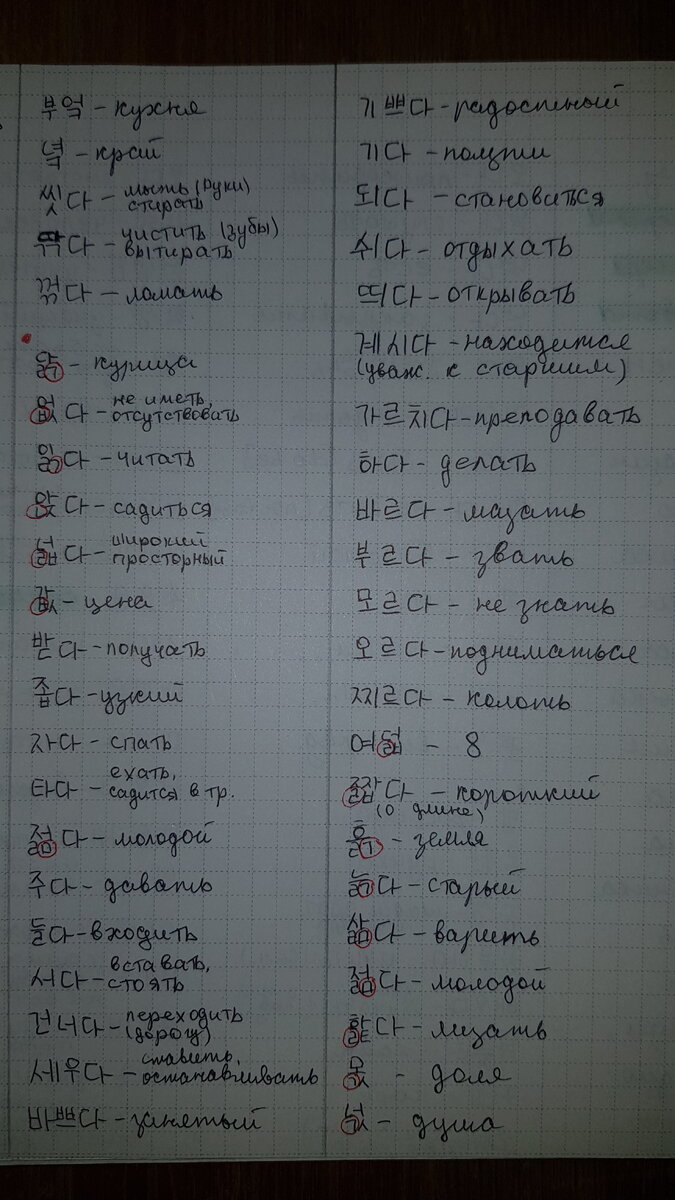 부엌 - кухня
녘 - край
씻다 - мыть (руки)
стирать
닦다 - чистить (зубы)
вытирать
꺾다 - ломать
닭 - курица
없다 - не иметь,
отсутствовать
읽다 - читать
앉다 - садиться
넓다 - широкий
просторный
값 - цена
받다 - получать
좁다 - узкий
자다 - спать
타다 - ехать,
садится в тр.
젊다 - молодой
주다 - давать
들다 - входить
서다 - вставать,
стоять
건너다 - переходить
(дорогу)
세우다 - ставить,
останавливать
바쁘다 - занятый
기쁘다 - радостный
기다 - ползти
되다 - становиться
쉬다 - отдыхать
띄다 - открывать
계시다 - находится
(уваж. к старшим)
가르치다 - преподавать
하다 - делать
바르다 - мазать
부르다 - звать
모르다 - не знать
오르다 - подниматься
찌르다 - колоть
여덟 - 8
짧다 - короткий
(о длине)
흙 - земля
늙다 - старый
삶다 - варить
젊다 - молодой
핥다 - лизать
몫 - доля
넋 - душа